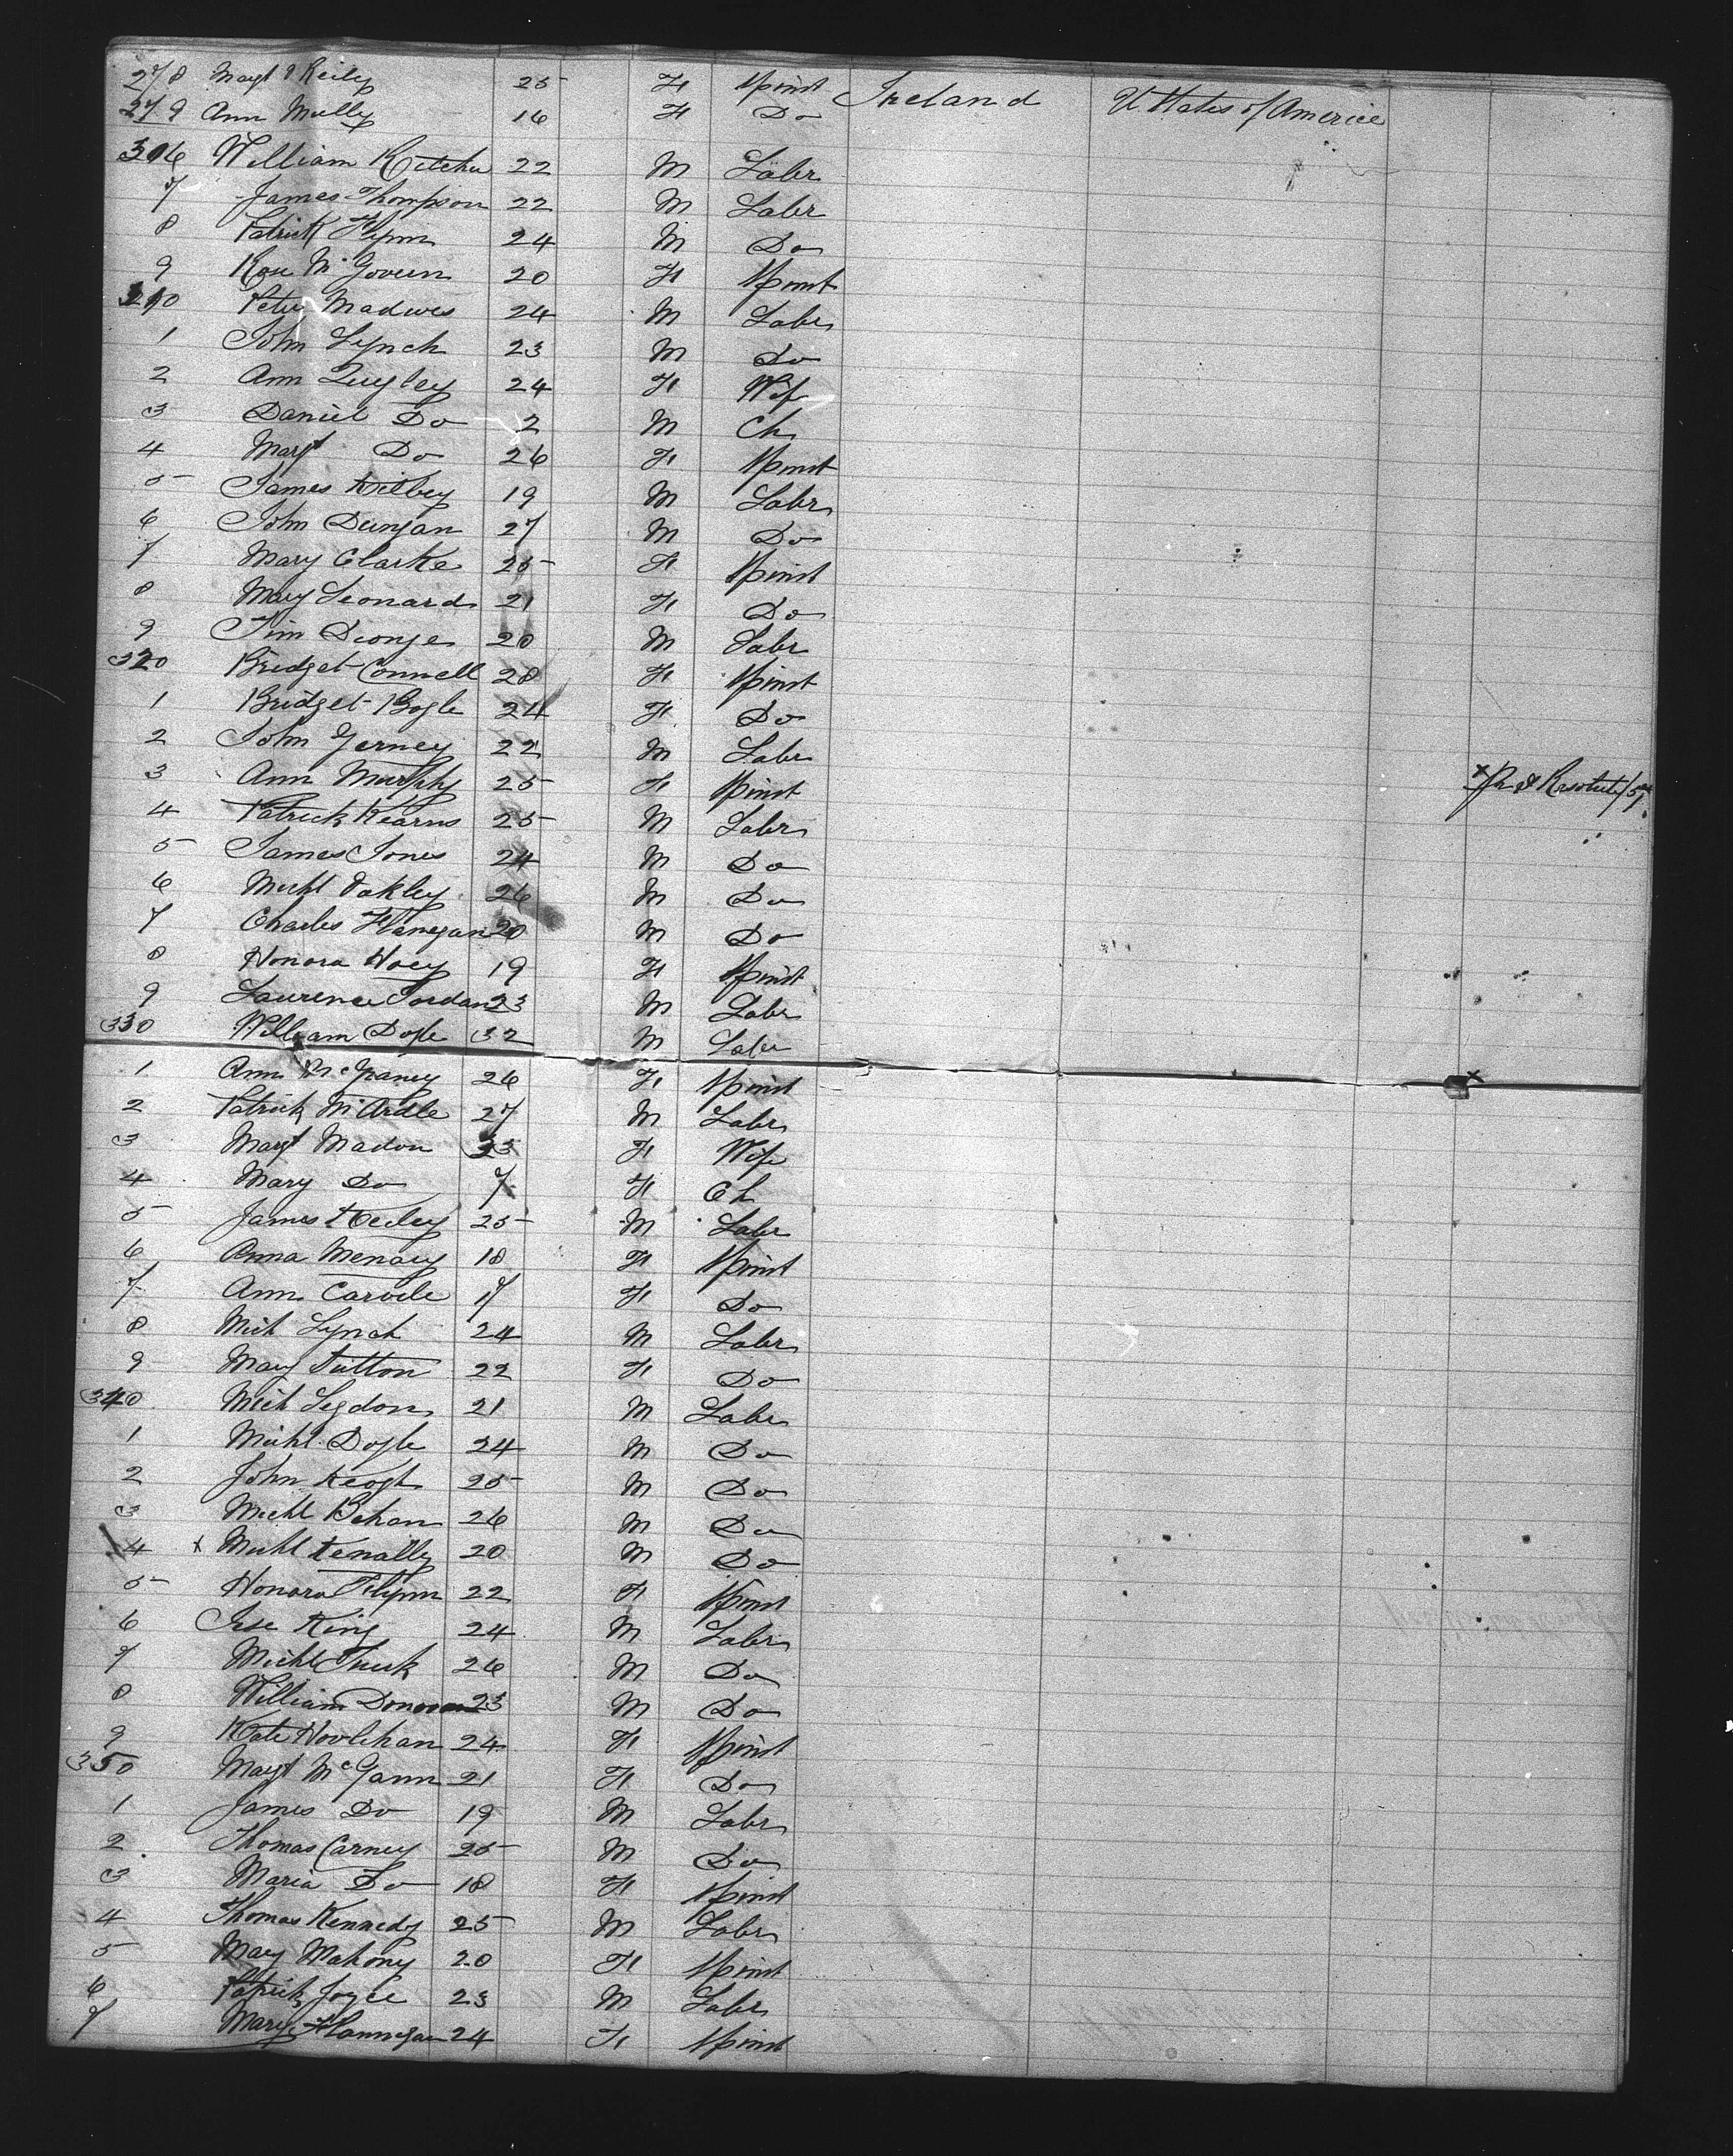 278 Margt O Reily 25 F Spinst Ireland U. States of America
279 Ann Mully 16 F Do
306 William 22 M Labr
7 James Thompson 22 M Labr
8 Patrick Flynn 24 M Do
9 Rose McGovern 20 F Spinst
310 Peter 24 M Labr
1 John Lynch 23 M Do
2 Ann Quigley 24 F Wife
3 Daniel Do 2 M Ch
4 Margt Do 26 F Spinst
5 James 19 M Labr
6 John Dungan 27 M Do
7 Mary Clarke 25 F Spinst
8 Mary Leonard 21 F Do
9 Tim 20 M Labr
320 Bridget Connell 28 F Spinst
1 Bridget Bogle 24 F Do
2 John Gerney 22 M Labr
3 Ann Murphy 25 F Spinst
4 Patrick Kearns 25 M Labr
5 James Jones 24 M Do
6 Michl Oakley 26 M Do
7 Charles Flanegan 20 M Do
8 Honora Hoey 19 F Spinst
9 Laurence Jordan 23 M Labr
330 William Doyle 32 M Labr
1 Ann 26 F Spinst
2 Patrick McArdle 27 M Labr
3 Margt Madon 33 F Wife
4 Mary Do 7 F Ch
5 James 25 M Labr
6 Anna Menary 18 F Spinst
7 Ann Carvile 17 F Do
8 Mich Lynch 24 M Labr
9 Mary Sutton 22 F Do
340 Mich Legdon 21 M Labr
1 Michl Doyle 24 M Do
2 John Keogh 25 M Do
3 Michl Behan 26 M Do
4 x Michl Kenally 20 M Do
5 Honora Flynn 22 F Spinst
6 King 24 M Labr
7 Michl 26 M Do
8 William Donovan 23 M Do
9 Kate Hoolihan 24 F Spinst
350 Margt McGann 21 F Do
1 James Do 19 M Labr
2 Thomas Carney 25 M Do
3 Maria Do 18 F Spinst
4 Thomas Kennedy 25 M Labr
5 Mary Mahony 20 F Spinst
6 Patrick Joyce 23 M Labr
7 Mary Flannegan 24 F Spinst